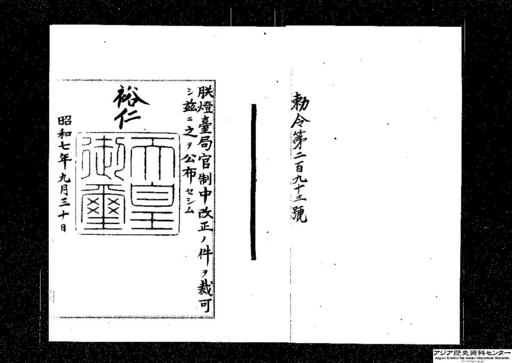 勅令第二百九十三號
朕燈臺局官制中改正ノ件ヲ裁可
シ茲ニ之ヲ公布セシム
裕仁
天皇
御璽
昭和七年九月三十日
アジア歴史資料センター
Japan Center for Asian Historical Records